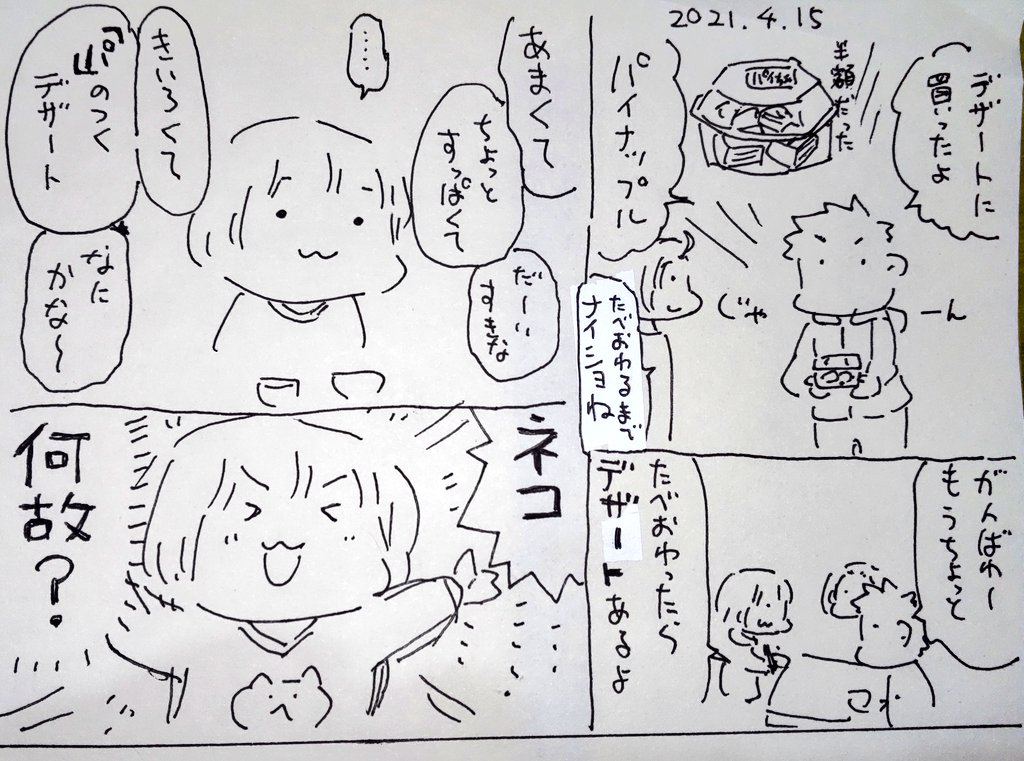 2021.4.15
デザートに
買ったよ
半額だった
パイナップル
じゃ
ーん
たべおわるまで
ナイショね
がんばれ〜
もうちょっと
たべおわったら
デザートあるよ
あまくて
ちょっと
すっぱくて
だーい
すきな
……
きいろくて
『パ』のつく
デザート
なに
かな〜
ネコ
何故？